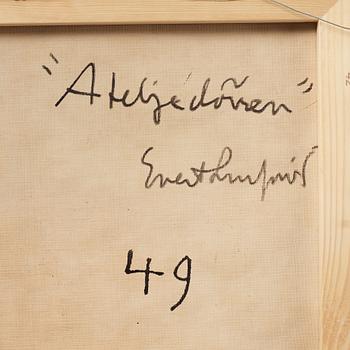 "Ateljédörren"
Evert Lundquist
49